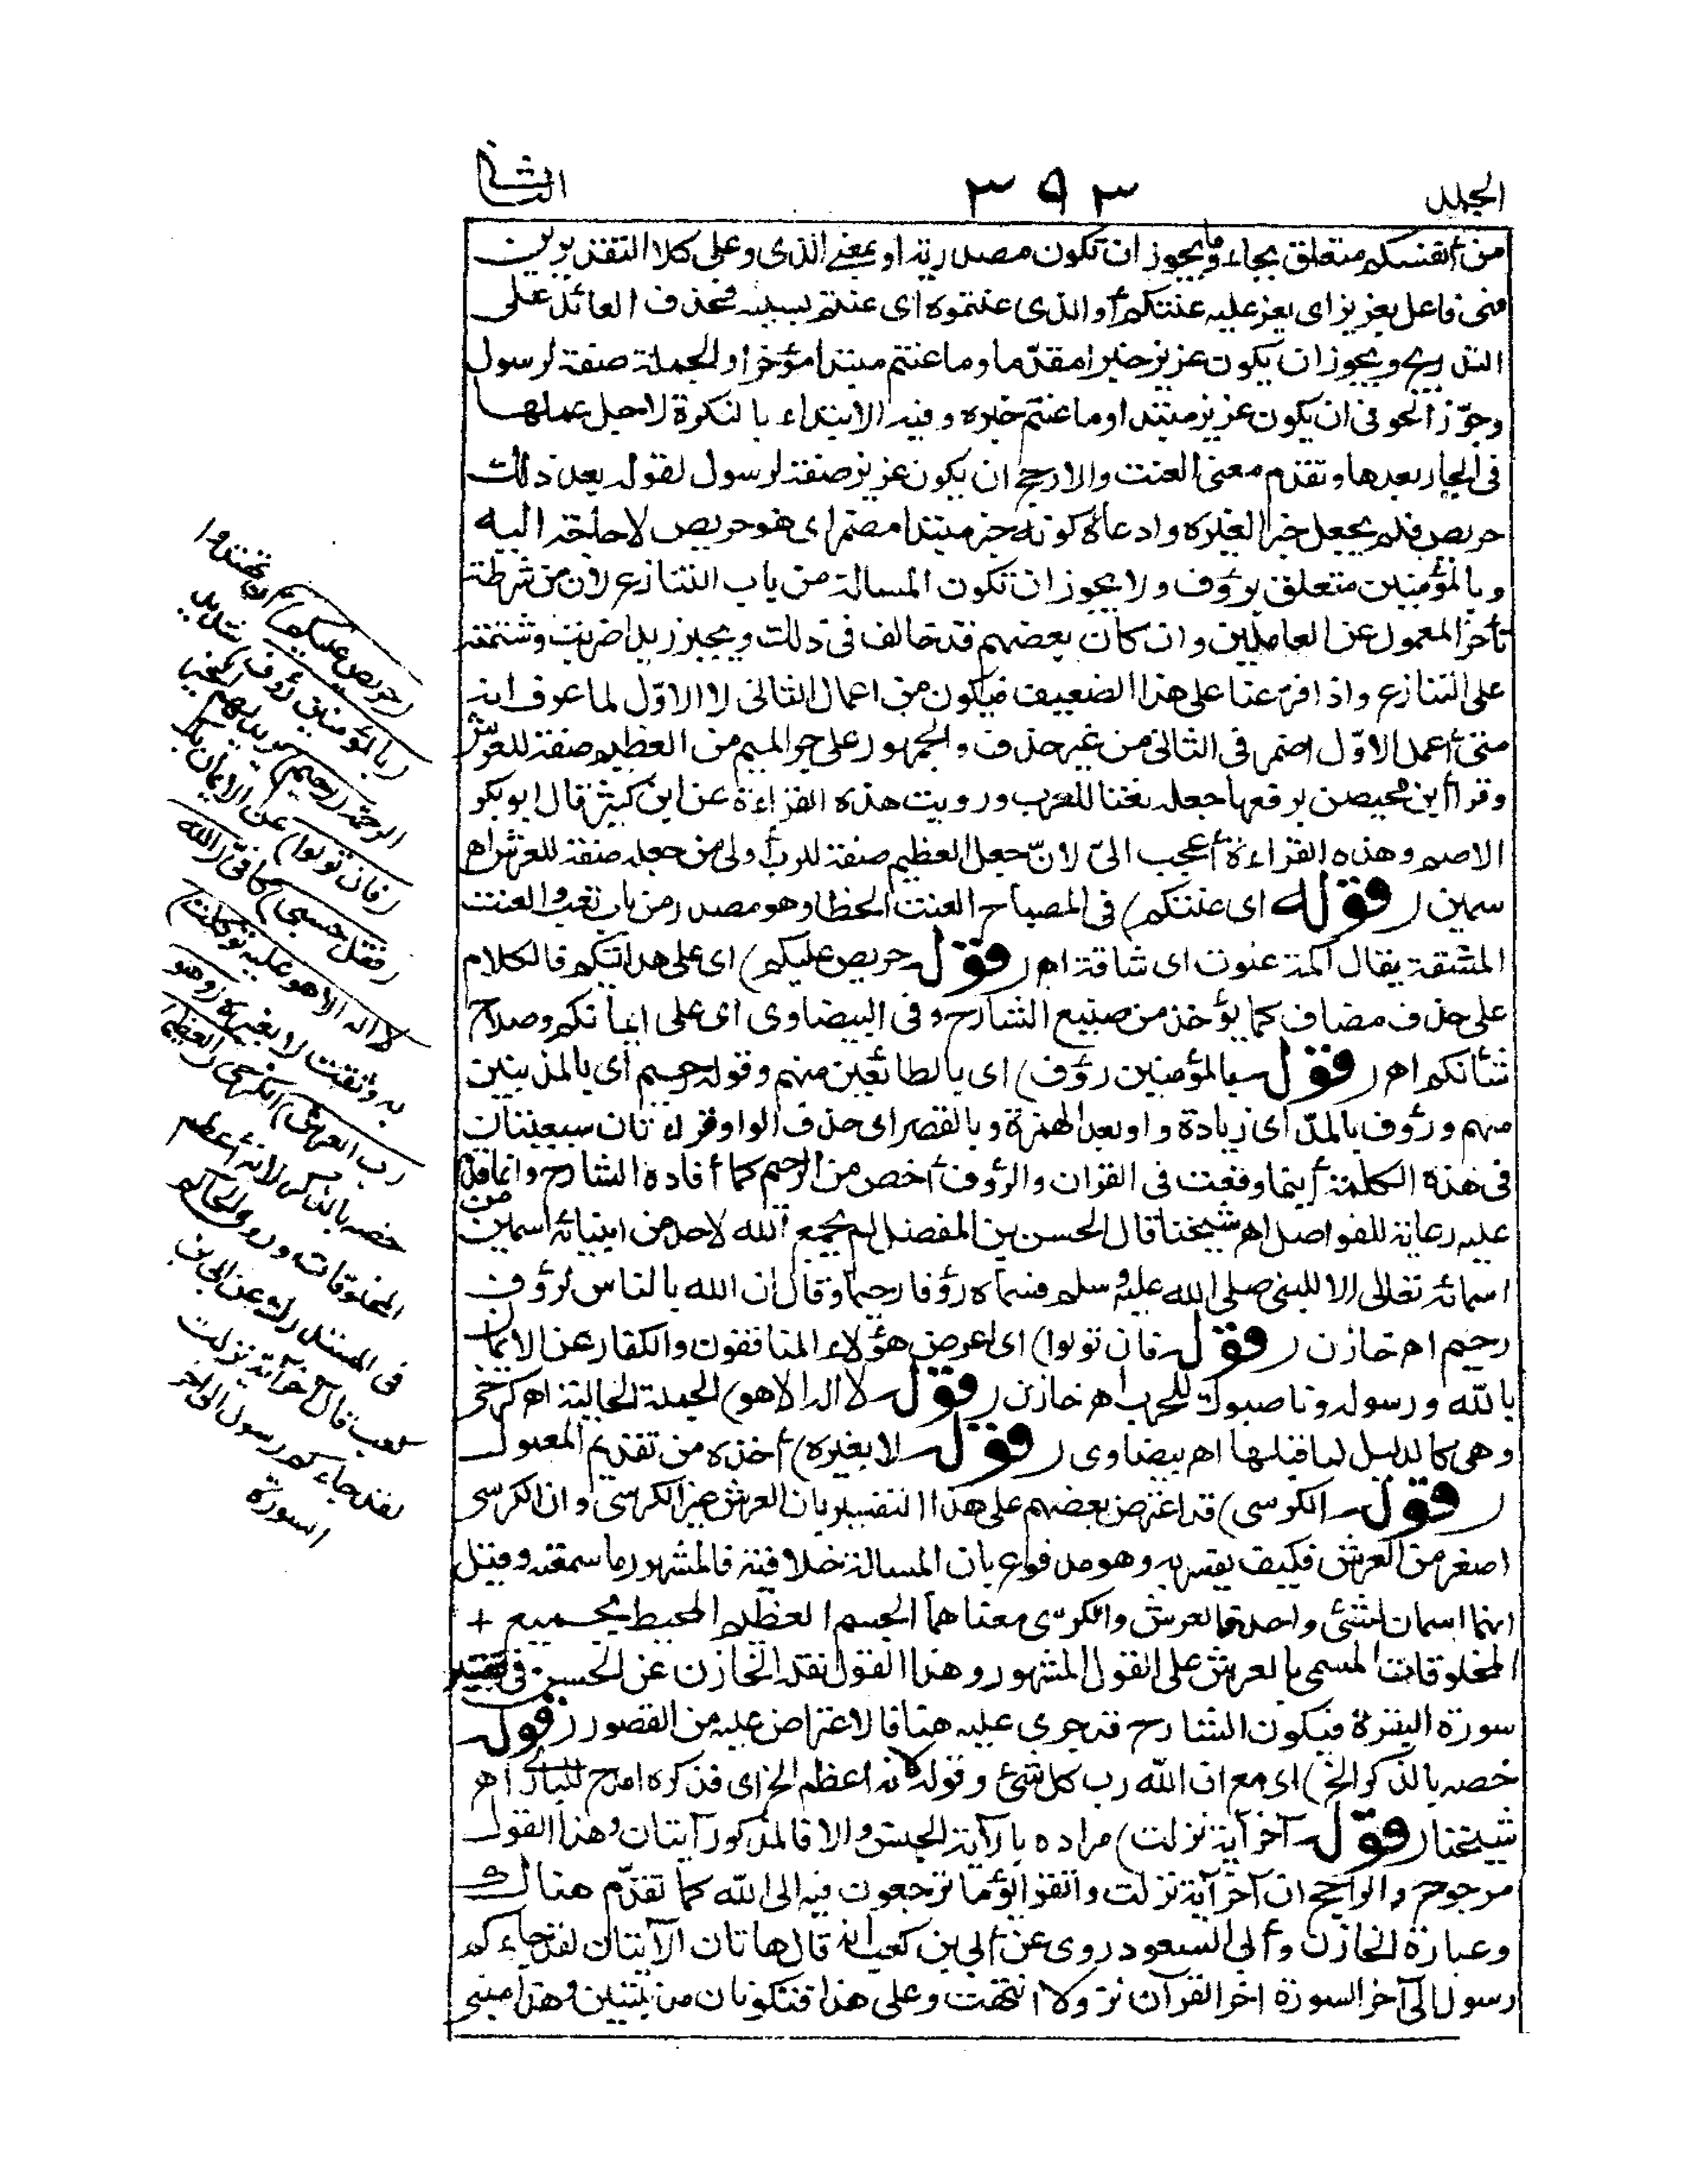 الجلد
٣٩٣
الثانى
من أنفسكم متعلق بجاء وما يجوز ان تكون مصدرية او بمعنى الذى وعلى كلا التقديرين
فهى فاعل بعزيز اى يعز عليه عنتكم أو الذى عنتموه اى عنتم بسببه فحذف العائد على
التدريج ويجوز ان يكون عزيز خبرا مقدّما وما عنتم مبتدا مؤخرا والجملة صفة لرسول
وجوّز الحوفى ان يكون عزيز مبتدا وما عنتم خبره وفيه الابتداء بالنكرة لاجل عملها
فى الجار بعدها وتقدم معنى العنت والارجح ان يكون عزيز صفة لرسول لقوله بعد ذلك
حريص فلم يجعل خبرا لغيره وادعاء كونه خبر مبتدا مضمر اى هو حريص لا حاجة اليه
وبالمؤمنين متعلق برؤف ولا يجوز ان تكون المسالة من باب التنازع لان من شرطه
تأخر المعمول عن العاملين وان كان بعضهم قد خالف فى ذلك ويجيز زيدا ضربت وشتمته
على التنازع واذا فرعنا على هذا الضعيف فيكون من اعمال الثانى لا الاوّل لما عرف انه
متى أعمل الاوّل اضمر فى الثانى من غير حذف والجمهور على جر الميم من العظيم صفة للعرش
وقرأ ابن محيصن برفعها جعله نعتا للرب ورويت هذه القراءة عن ابن كثير قال ابو بكر
الاصم وهذه القراءة أعجب الىّ لانّ جعل العظيم صفة للرب أولى من جعله صفة للعرش اه
سمين (قوله اى عنتكم) فى المصباح العنت الخطا وهو مصدر من باب تعب والعنت
المشقة يقال اكمة عنوت اى شاقة اه (قوله حريص عليكم) اى على هدايتكم فالكلام
على حذف مضاف كما يؤخذ من صنيع الشارح وفى البيضاوى اى على ايمانكم وصلاح
شأنكم اه (قوله بالمؤمنين رؤف) اى بالطائعين منهم وقوله رحيم أى بالمذنبين
منهم ورؤف بالمدّ اى زيادة واو بعد الهمزة وبالقصر اى حذف الواو قراءتان سبعيتان
فى هذه الكلمة أينما وقعت فى القران والرؤف أخص من الرحيم كما أفاده الشارح وانما قدم
عليه رعاية للفواصل اه شيخنا قال الحسن بن المفضل لم يجمع الله لاحد من انبيائه اسمين من
اسمائه تعالى الا للنبى صلى الله عليه وسلم فسماه رؤفا رحيما وقال ان الله بالناس لرؤف
رحيم اه خازن (قوله فان تولوا) اى اعرض هؤلاء المنافقون والكفار عن الايمان
بالله ورسوله وناصبوك للحرب اه خازن (قوله لا اله الا هو) الجملة الحالية اه كرخى
وهى كالدليل لما قبلها اه بيضاوى (قوله لا بغيره) أخذه من تقديم المعمول
(قوله الكرسى) قد اعترض بعضهم على هذا التفسير بان العرش غير الكرسى وان الكرسى
اصغر من العرش فكيف يفسر به وهو مدفوع بان المسالة خلافية فالمشهور ما سمعته وقيل
انهما اسمان لشئ واحد فالعرش والكرسى معناهما الجسم العظيم المحيط بجميع +
المخلوقات المسمى بالعرش على القول المشهور وهذا القول نقله الخازن عن الحسن فى تفسير
سورة البقرة فيكون الشارح قد جرى عليه هنا فالاعتراض عليه من القصور (قوله
خصه بالذكر الخ) اى مع ان الله رب كل شئ وقوله لانه اعظم الخ اى فذكره امدح للبارئ اه
شيخنا (قوله آخر آية نزلت) مراده بالآية الجنس والا فالمذكور آيتان وهذا القول
مرجوح والراجح ان آخر آية نزلت واتقوا يوما ترجعون فيه الى الله كما تقدّم هناك
وعبارة الخازن وأبى السعود روى عن أبى بن كعب انه قال هاتان الآيتان لقد جاءكم
رسول الى آخر السورة اخر القرآن نزولا انتهت وعلى هذا فتكونان مدنيتين وهذا مبنى
(حريص عليكم) ان تهتدوا
(بالمؤمنين رؤف) شديد
الرحمة (رحيم) يريد لهم الخير
(فان تولوا) عن الايمان بك
(فقل حسبى) كافىّ (الله
لا اله الا هو عليه توكلت)
به وثقت لا بغيره (وهو
رب العرش) الكرسى (العظيم)
خصه بالذكر لانه أعظم
المخلوقات وروى الحاكم
فى المستدرك عن ابى بن
كعب قال آخر آية نزلت
لقد جاءكم رسول الى اخر
السورة